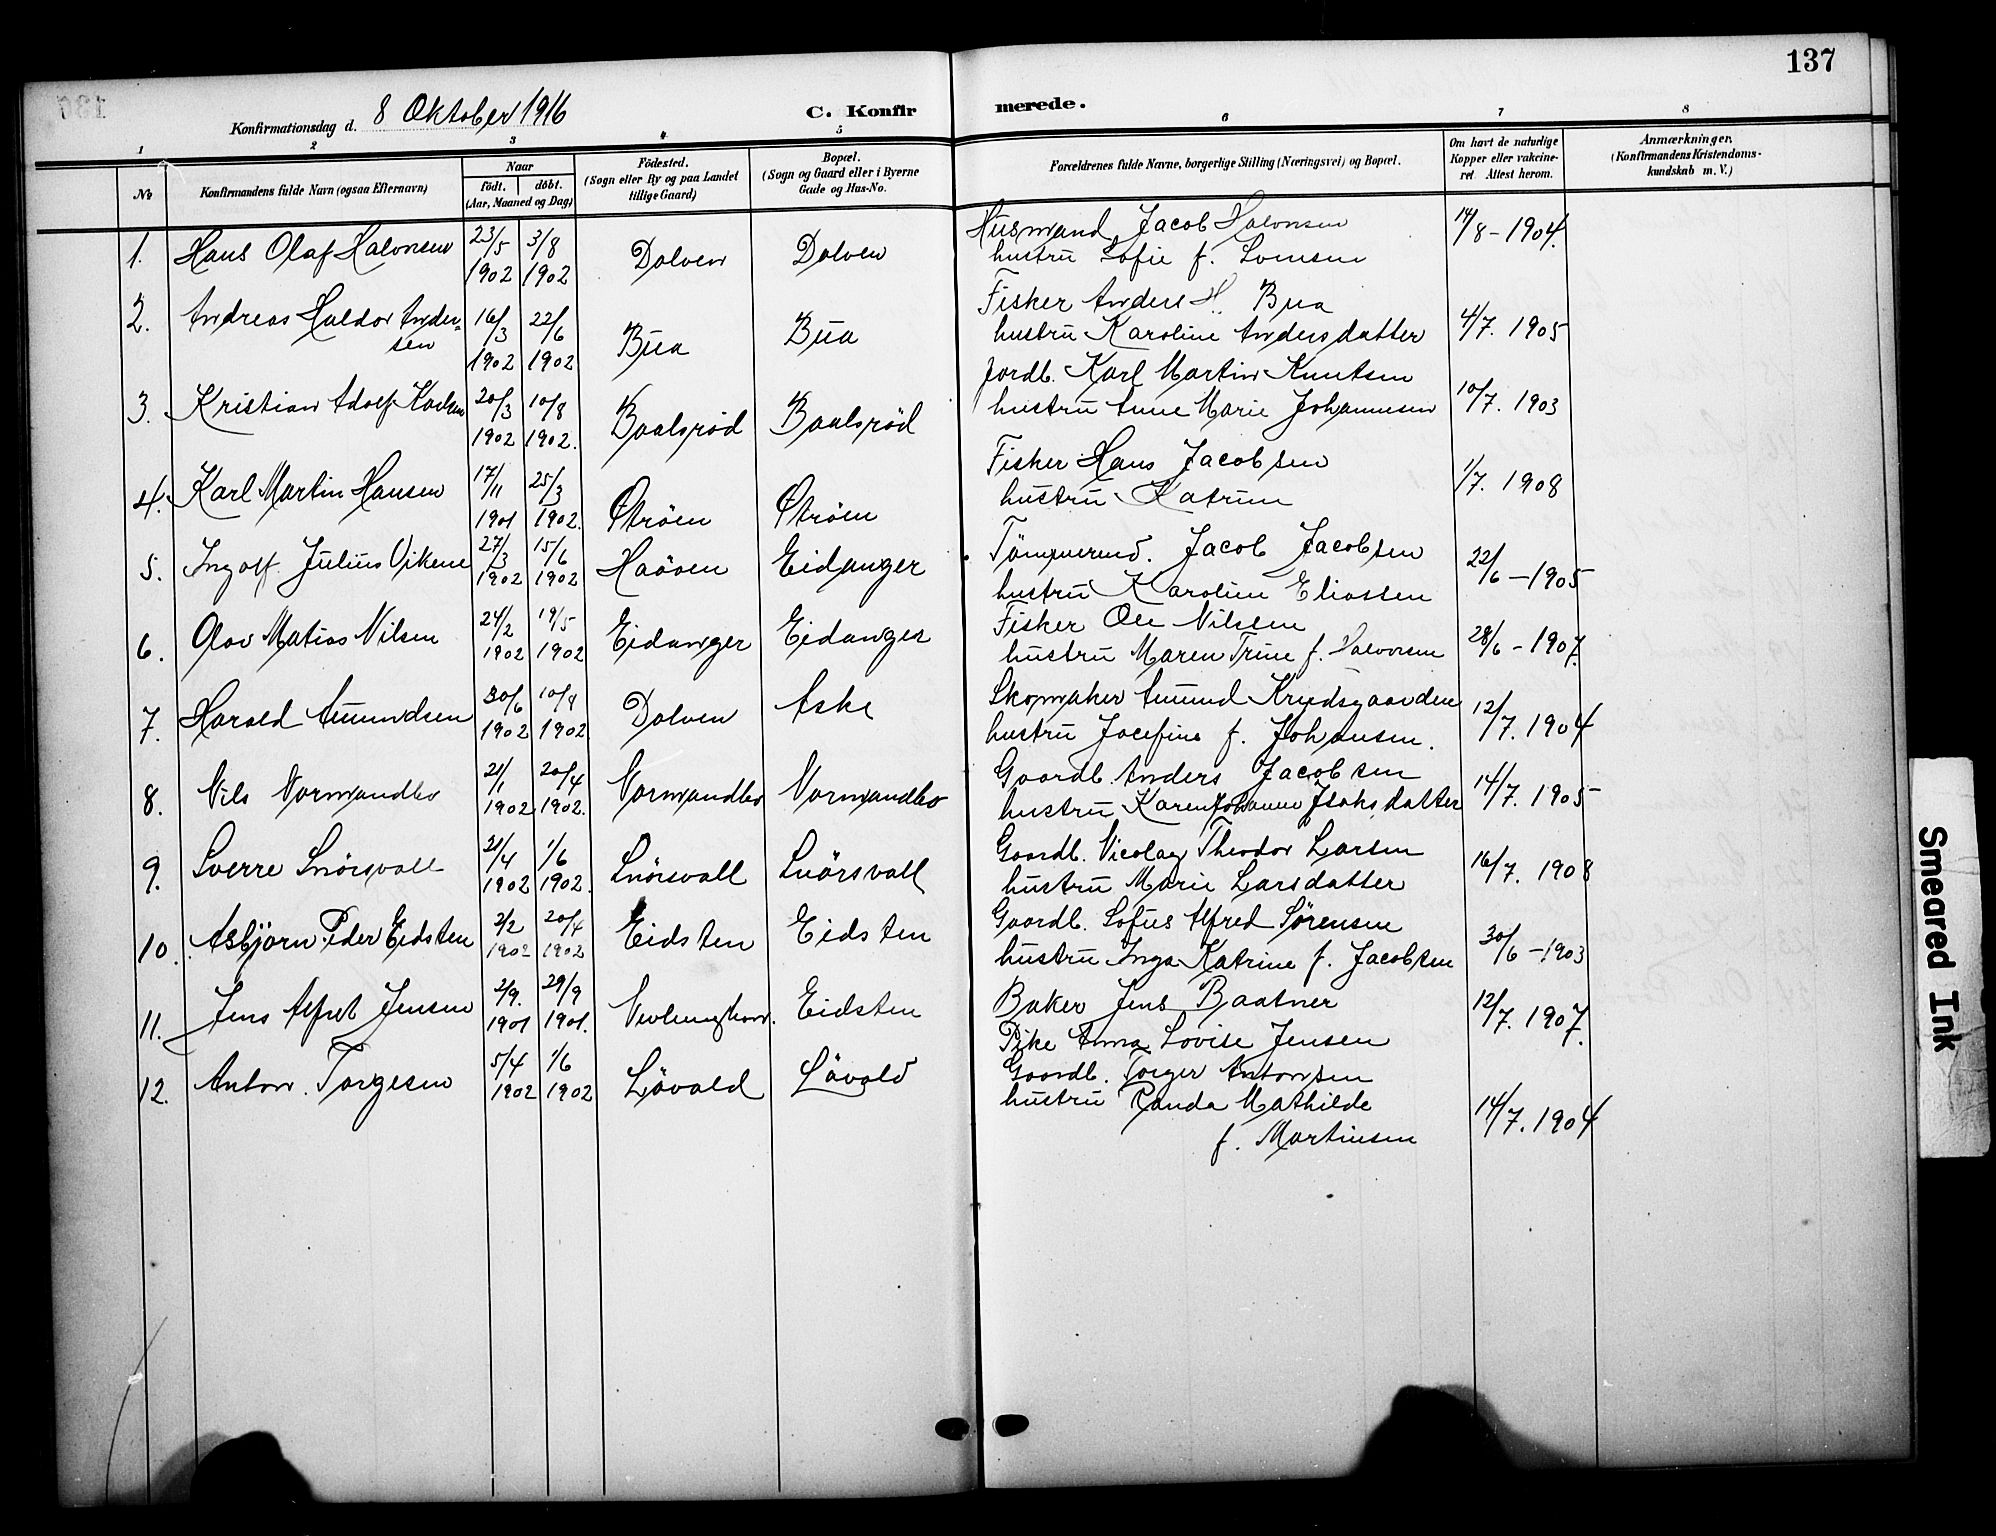 137
Konfirmationsdag d. 8 Oktober 1916 C. Konfirmerede.
1 2 3 4 5 6 7 8
No
Konfirmandens fulde Navn (ogsaa Efternavn)
Naar
födt. döbt.
(Aar, Maaned og Dag)
Födested.
(Sogn eller By og paa Landet
tillige Gaard)
Bopæl.
(Sogn og Gaard eller i Byerne
Gade og Hus-No.
Forældrenes fulde Navne, borgerlige Stilling (Næringsvei) og Bopæl.
Om havt de naturlige
Kopper eller vakcine-
ret Attest herom.
Anmærkninger.
(Konfirmandens Kristendoms-
kundskab m. V.)
1. Hans Olaf Halvorsen 23/5 1902 3/8 1902 Dolven Dolven Husmand Jacob Halvorsen 14/8-1904.
hustru Sofie f.
2. Andreas Haldor Ander-
sen 16/3 1902 22/6 1902 Bua Bua Fisker Anders H. Bua
hustru Karoline Andersdatter 4/7. 1905
3. Kristian Adolf Karlsen 20/3 1902 10/8 1902. Baalsröd Baalsröd Jordb. Karl Martin Knutsen
hustru Anne Marie Johannesen 10/7. 1903
4. Karl Martin Hansen 17/11 1901 25/3 1902. Ströen Ströen Fisker Hans Jacobsen
hustru Katrine 1/7. 1908
5. Ingolf Julius Vikene 27/3 1902 15/6 1902 Haöven Eidanger Tömmermd. Jacob Jacobsen
hustru Karoline Eliassen 22/6-1905
6. Olav Matias Nilsen 24/2 1902 19/5 1902 Eidanger Eidanger Fisker Ole Nilssen
hustru Maren Trine f. Halvorsen 28/6-1907.
7. Harald Amundsen 30/6 1902 10/8 1902 Dolven Aske Skomaker Amund
hustru Josefine f. Johansen. 12/7. 1904
8. Nils Normandbo 21/1 1902 20/4 1902. Normandbo Normandbo Gaardb. Anders Jacobsen
hustru Karen Johanne Isaksdatter 14/7. 1905
9. Sverre Snörsvall 21/4 1902 1/6 1902. Snörsvall Snörsvall Gaardb. Nicolay Theodor Larsen
hustru Marie Larsdatter 16/7. 1908
10. Asbjörn Peder Eidsten 2/2 1902 20/4 1902 Eidsten Eidsten Gaardb. Sofus Alfred Sörensen
hustru Inga Katrine f. Jacobsen 30/6-1903
11. Jens Alfred Jensen 2/9. 1901 29/9 1901. Nevlunghavn. Eidsten Baker Jens Baatner
Pike Anna Lovise Jensen 12/7. 1907.
12. Anton Torgesen 5/4 1902 1/6 1902 Lövald Lövald Gaardb. Torger Antonsen
hustru Randa Mathilde
f. Martinsen 14/7. 1904
Smeared Ink